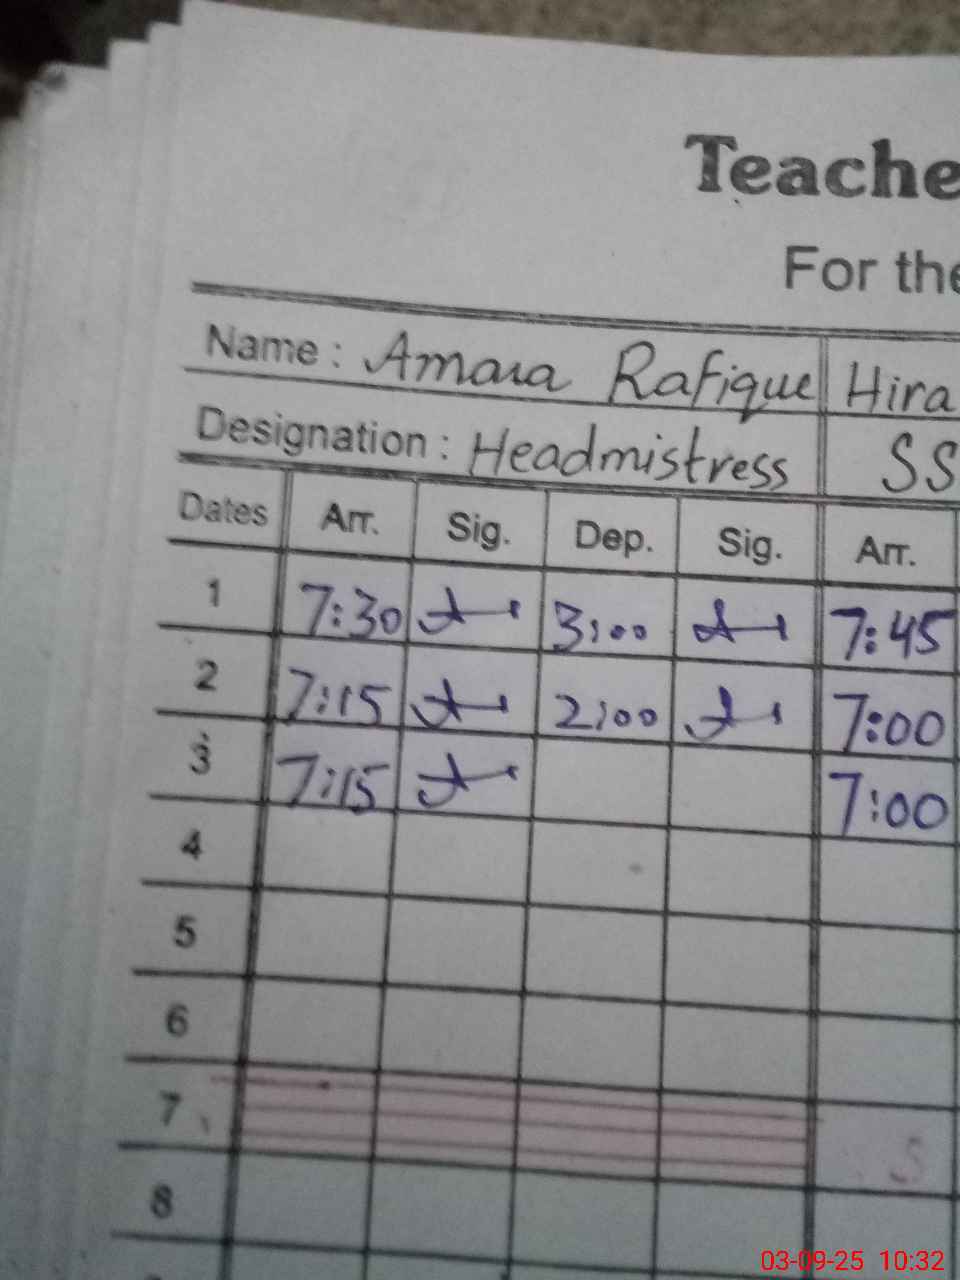 Teache
For the
Name : Amara Rafique Hira
Designation : Headmistress SS
Dates Arr. Sig. Dep. Sig. Arr.
1 7:30 3:00 7:45
2 7:15 2:00 7:00
3 7:15 7:00
4
5
6
7 S
8
03-09-25 10:32